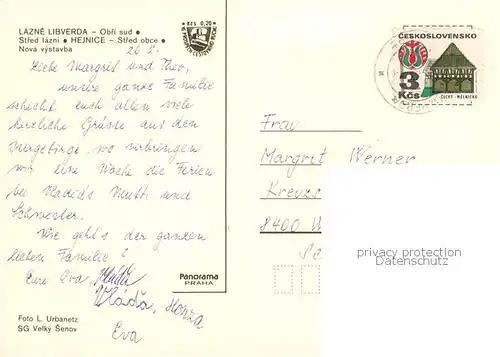 LÁZNĚ LIBVERDA – Obří sud ●
Střed lázní ● HEJNICE – Střed obce ●
Nová výstavba
Kčs 0,20
26. 2.
Liebe Margrit und Theo,
unsere ganze Familie
schickt euch allen viele
herzliche Grüsse aus dem
Isergebirge, wo verbringen
wir eine Woche die Ferien
bei Vladia's Mutti und
Schwester.
Wie geht's der ganzen
lieben Familie?
Eure Eva,
Vláďa, Honza
Eva
Panorama
PRAHA
Foto L. Urbanetz
SG Velký Šenov
ČESKOSLOVENSKO
3
Kčs
ČECHY - MĚLNICKO
Frau
Margrit Werner
Kreuzs
8400 W
privacy protection
Datenschutz